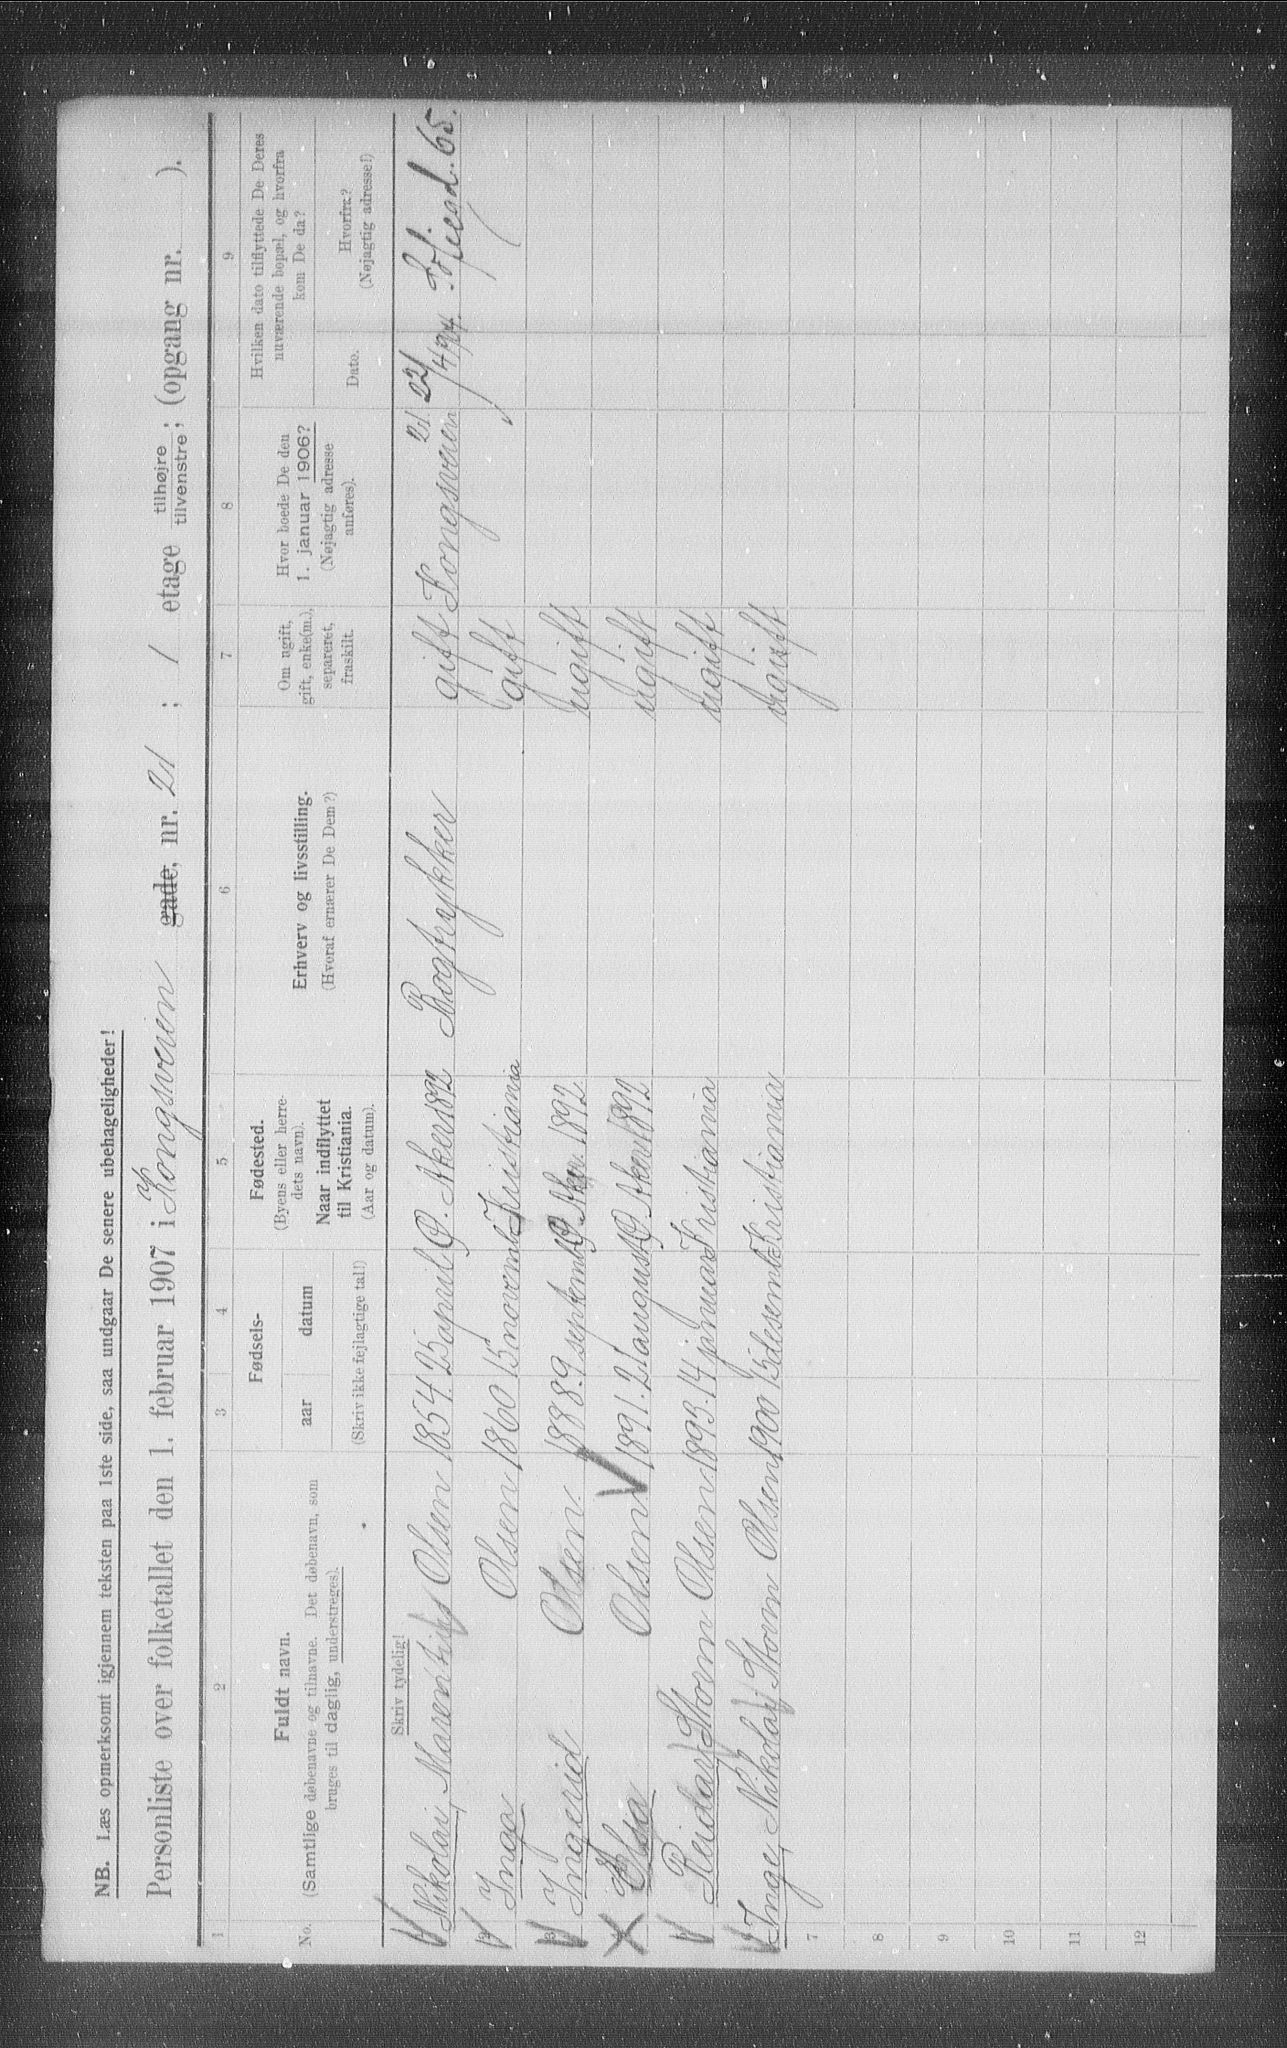 NB. Læs opmerksomt igjennem teksten paa 1ste side, saa undgaar De senere ubehageligheder!
Personliste over folketallet den 1. februar 1907 i Kongsveien gade, nr. 21 ; 1 etage tilhøjre tilvenstre; (opgang nr. ).
1 2 3 4 5 6 7 8 9
No.
Fuldt navn.
(Samtlige døbenavne og tilnavne. Det døbenavn, som
bruges til daglig, understreges).
Fødsels-
aar datum
(Skriv ikke fejlagtige tal!)
Fødested.
(Byens eller herre-
dets navn).
Naar indflyttet
til Kristiania.
(Aar og datum).
Erhverv og livsstilling.
(Hvoraf ernærer De Dem?)
Om ugift,
gift, enke(m.),
separeret,
fraskilt.
Hvor boede De den
1. januar 1906?
(Nøjagtig adresse
anføres).
Hvilken dato tilflyttede De Deres
nuværende bopæl, og hvorfra
kom De da?
Dato.
Hvorfra?
(Nøjagtig adresse!)
Skriv tydelig!
Nikolai Olsen 1854. 25 april Ø. Aker 1892 Bogtrykker gift Kongsveien 21 22/4 94. Sofiegd. 65.
Inga Olsen 1860 15 novemb. Kristiania gift
3 Ingerid Olsen. 1888. 9 septemb. Ø. Aker. 1892 ugift
Olsen 1891. 21 august Ø. Aker 1892 ugift
Reidar Storm Olsen 1893. 14 januar Kristiania ugift
Inge Nikolai Storm Olsen 1900 15 desemb. Kristiania ugift
7
8
9
10
11
12